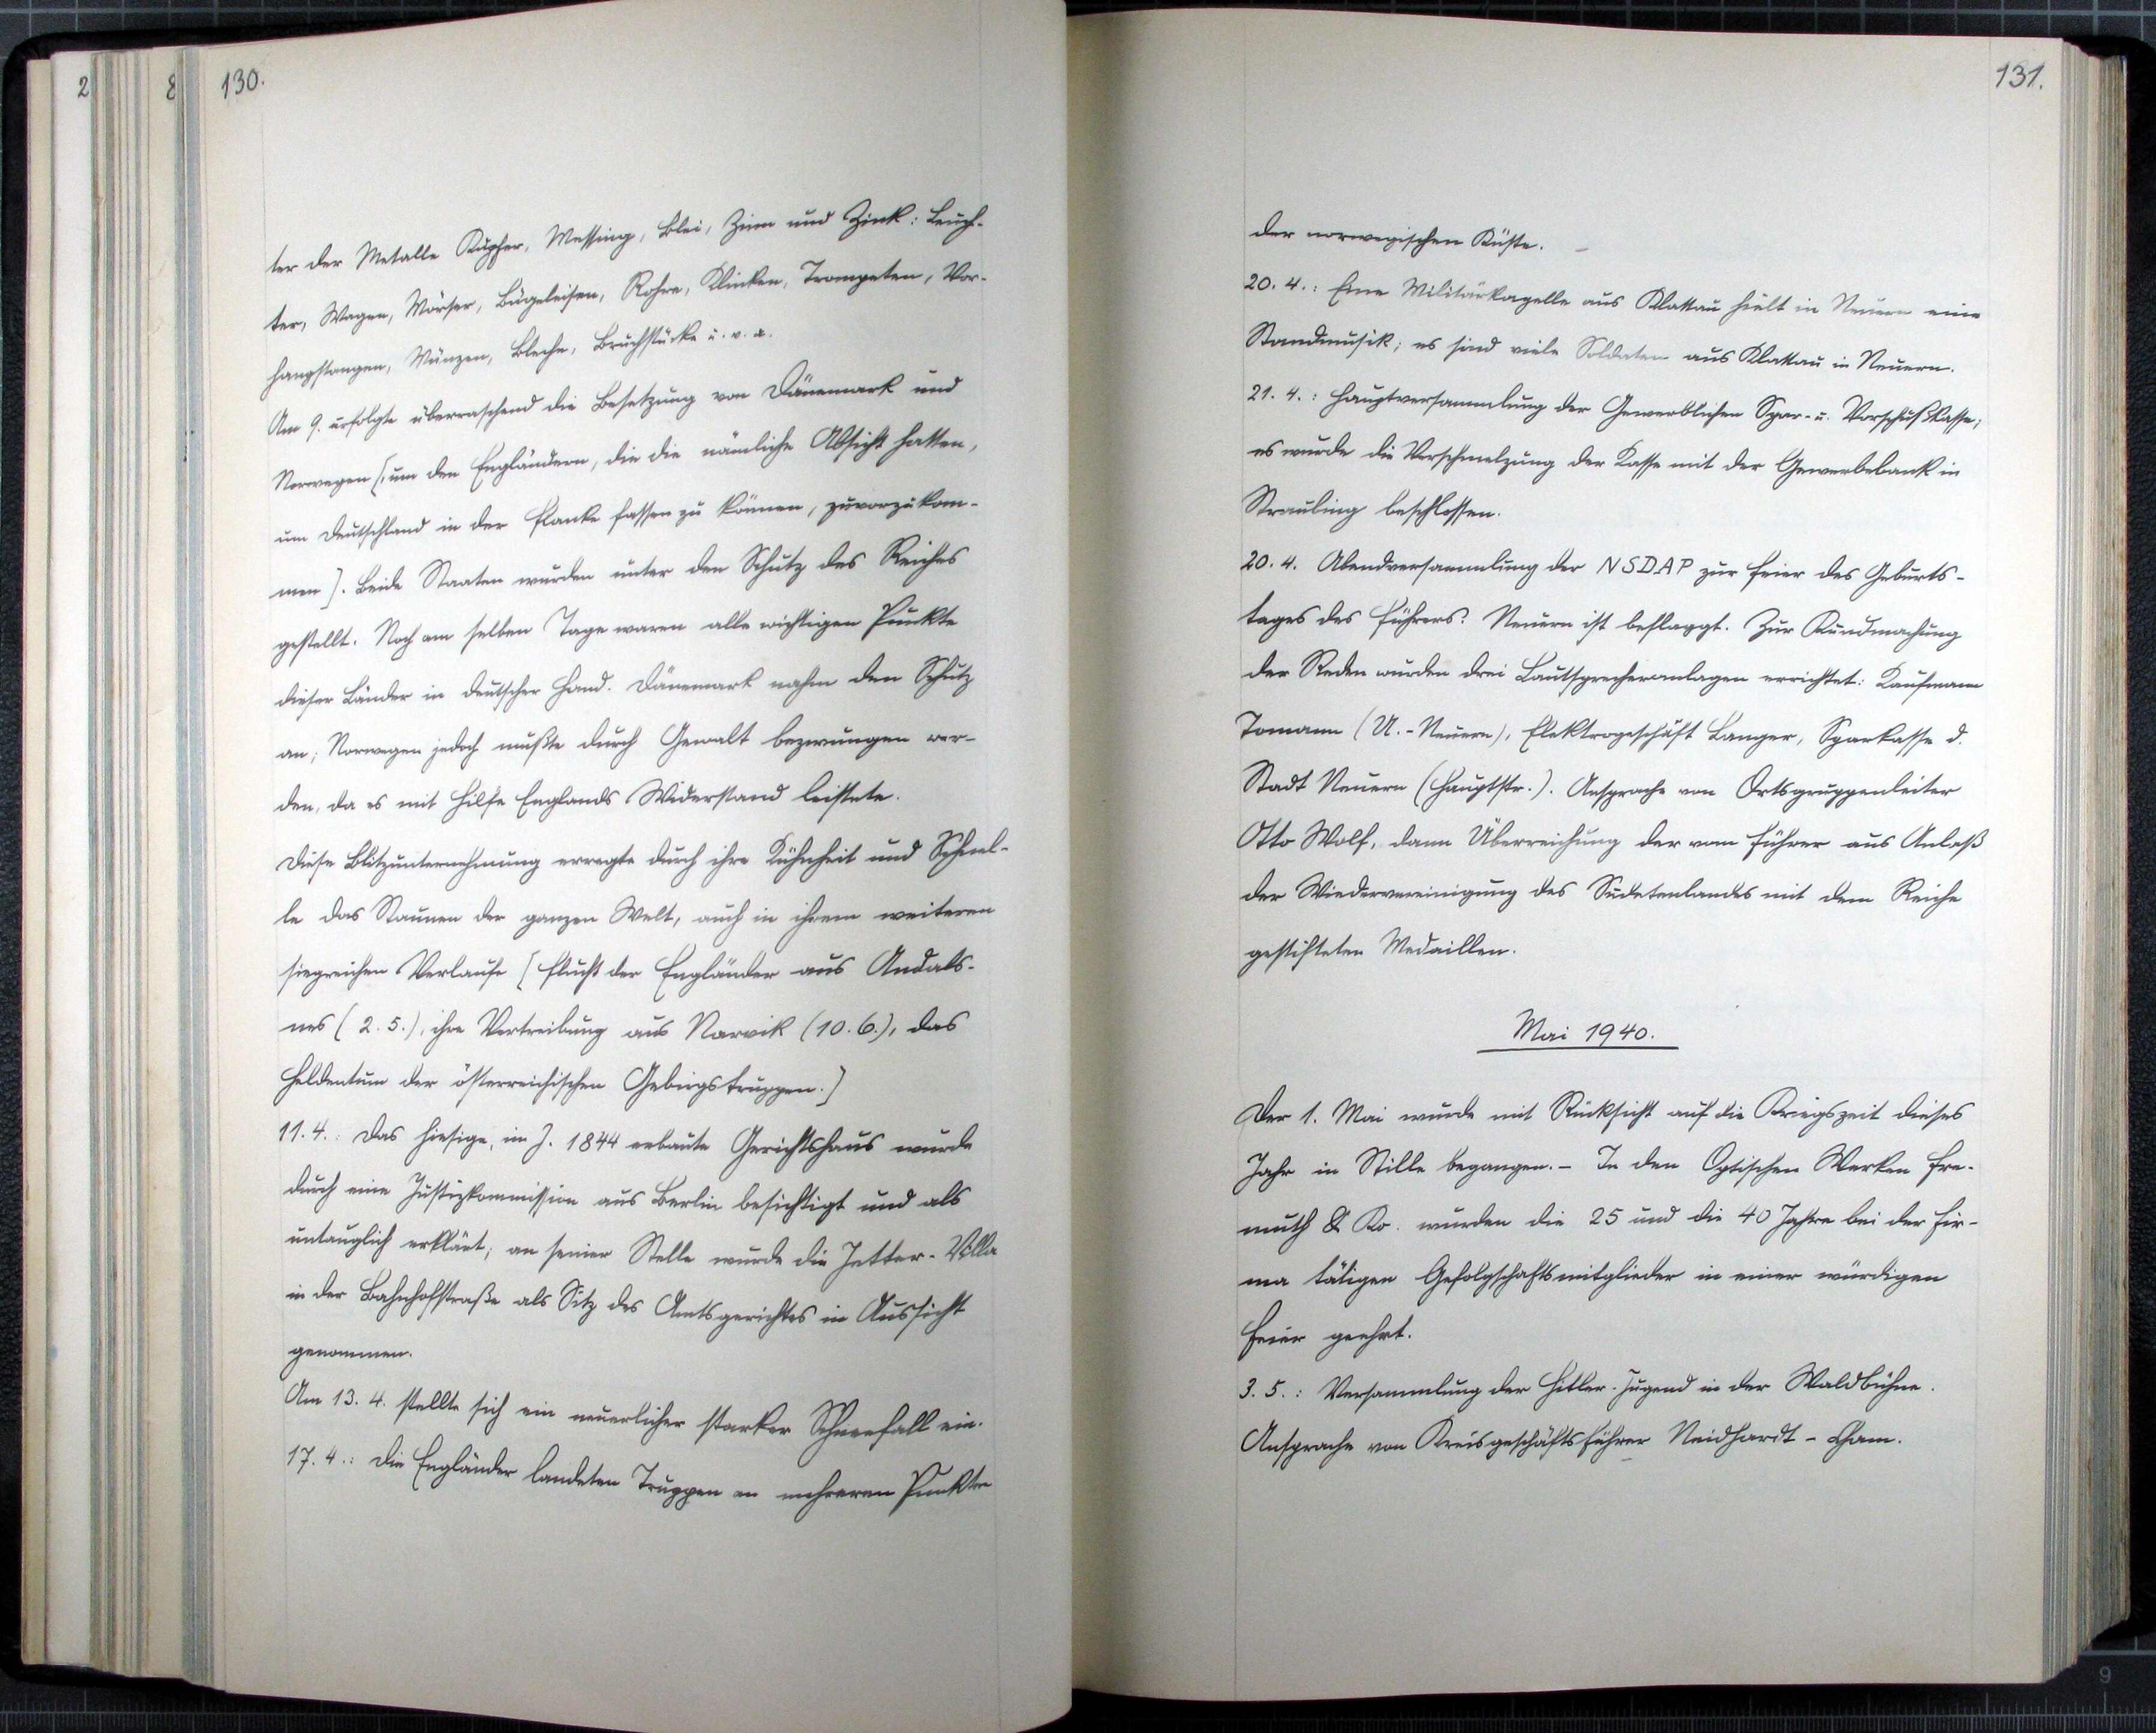 2
8
130.
ter der Metalle Kupfer, Messing, Blei, Zinn und Zink: Leuch-
ter, Wagen, Mörser, Bügeleisen, Rohre, Klinken, Trompeten, Vor-
hangstangen, Münzen, Bleche, Bruchstücke u. v. a.
Am 9. erfolgte überraschend die Besetzung von Dänemark und
Norwegen [um den Engländern, die die nämliche Absicht hatten,
um Deutschland in der Flanke fassen zu können, zuvorzukom-
men]. Beide Staaten wurden unter den Schutz des Reiches
gestellt. Noch am selben Tage waren alle wichtigen Punkte
dieser Länder in deutscher Hand. Dänemark nahm den Schutz
an; Norwegen jedoch mußte durch Gewalt bezwungen wer-
den, da es mit Hilfe Englands Widerstand leistete.
Diese Blitzunternehmung erregte durch ihre Kühnheit und Schnel-
le das Staunen der ganzen Welt, auch in ihrem weiteren
siegreichen Verlaufe [Flucht der Engländer aus Andals-
nes (2.5.), ihre Vertreibung aus Narvik (10.6.), das
Heldentum der österreichischen Gebirgstruppen.]
11.4.: Das hiesige, im J. 1844 erbaute Gerichtshaus wurde
durch eine Justizkommission aus Berlin besichtigt und als
untauglich erklärt; an seiner Stelle wurde die Jetter-Villa
in der Bahnhofstraße als Sitz des Amtsgerichtes in Aussicht
genommen.
Am 13.4. stellte sich ein neuerlicher starker Schneefall ein.
17.4.: Die Engländer landeten Truppen an mehreren Punkten
131.
der norwegischen Küste. –
20.4.: Eine Militärkapelle aus Klattau hielt in Neuern eine
Standmusik; es sind viele Soldaten aus Klattau in Neuern.
21.4.: Hauptversammlung der Gewerblichen Spar- u. Vorschußkasse;
es wurde die Verschmelzung der Kasse mit der Gewerbebank in
Straubing beschlossen.
20.4. Abendversammlung der NSDAP zur Feier des Geburts-
tages des Führers. Neuern ist beflaggt. Zur Kundmachung
der Reden wurden drei Lautsprecheranlagen errichtet: Kaufmann
Tomann (U.-Neuern), Elektrogeschäft Langer, Sparkasse d.
Stadt Neuern (Hauptstr.). Ansprache von Ortsgruppenleiter
Otto Wolf, dann Überreichung der vom Führer aus Anlaß
der Wiedervereinigung des Sudetenlandes mit dem Reiche
gestifteten Medaillen.
Mai 1940.
Der 1. Mai wurde mit Rücksicht auf die Kriegszeit dieses
Jahr in Stille begangen. – In den Optischen Werken Fre-
muth & Ko. wurden die 25 und die 40 Jahre bei der Fir-
ma tätigen Gefolgschaftsmitglieder in einer würdigen
Feier geehrt.
3.5.: Versammlung der Hitler-Jugend in der Waldbühne.
Ansprache von Kreisgeschäftsführer Neidhardt - Cham.
9